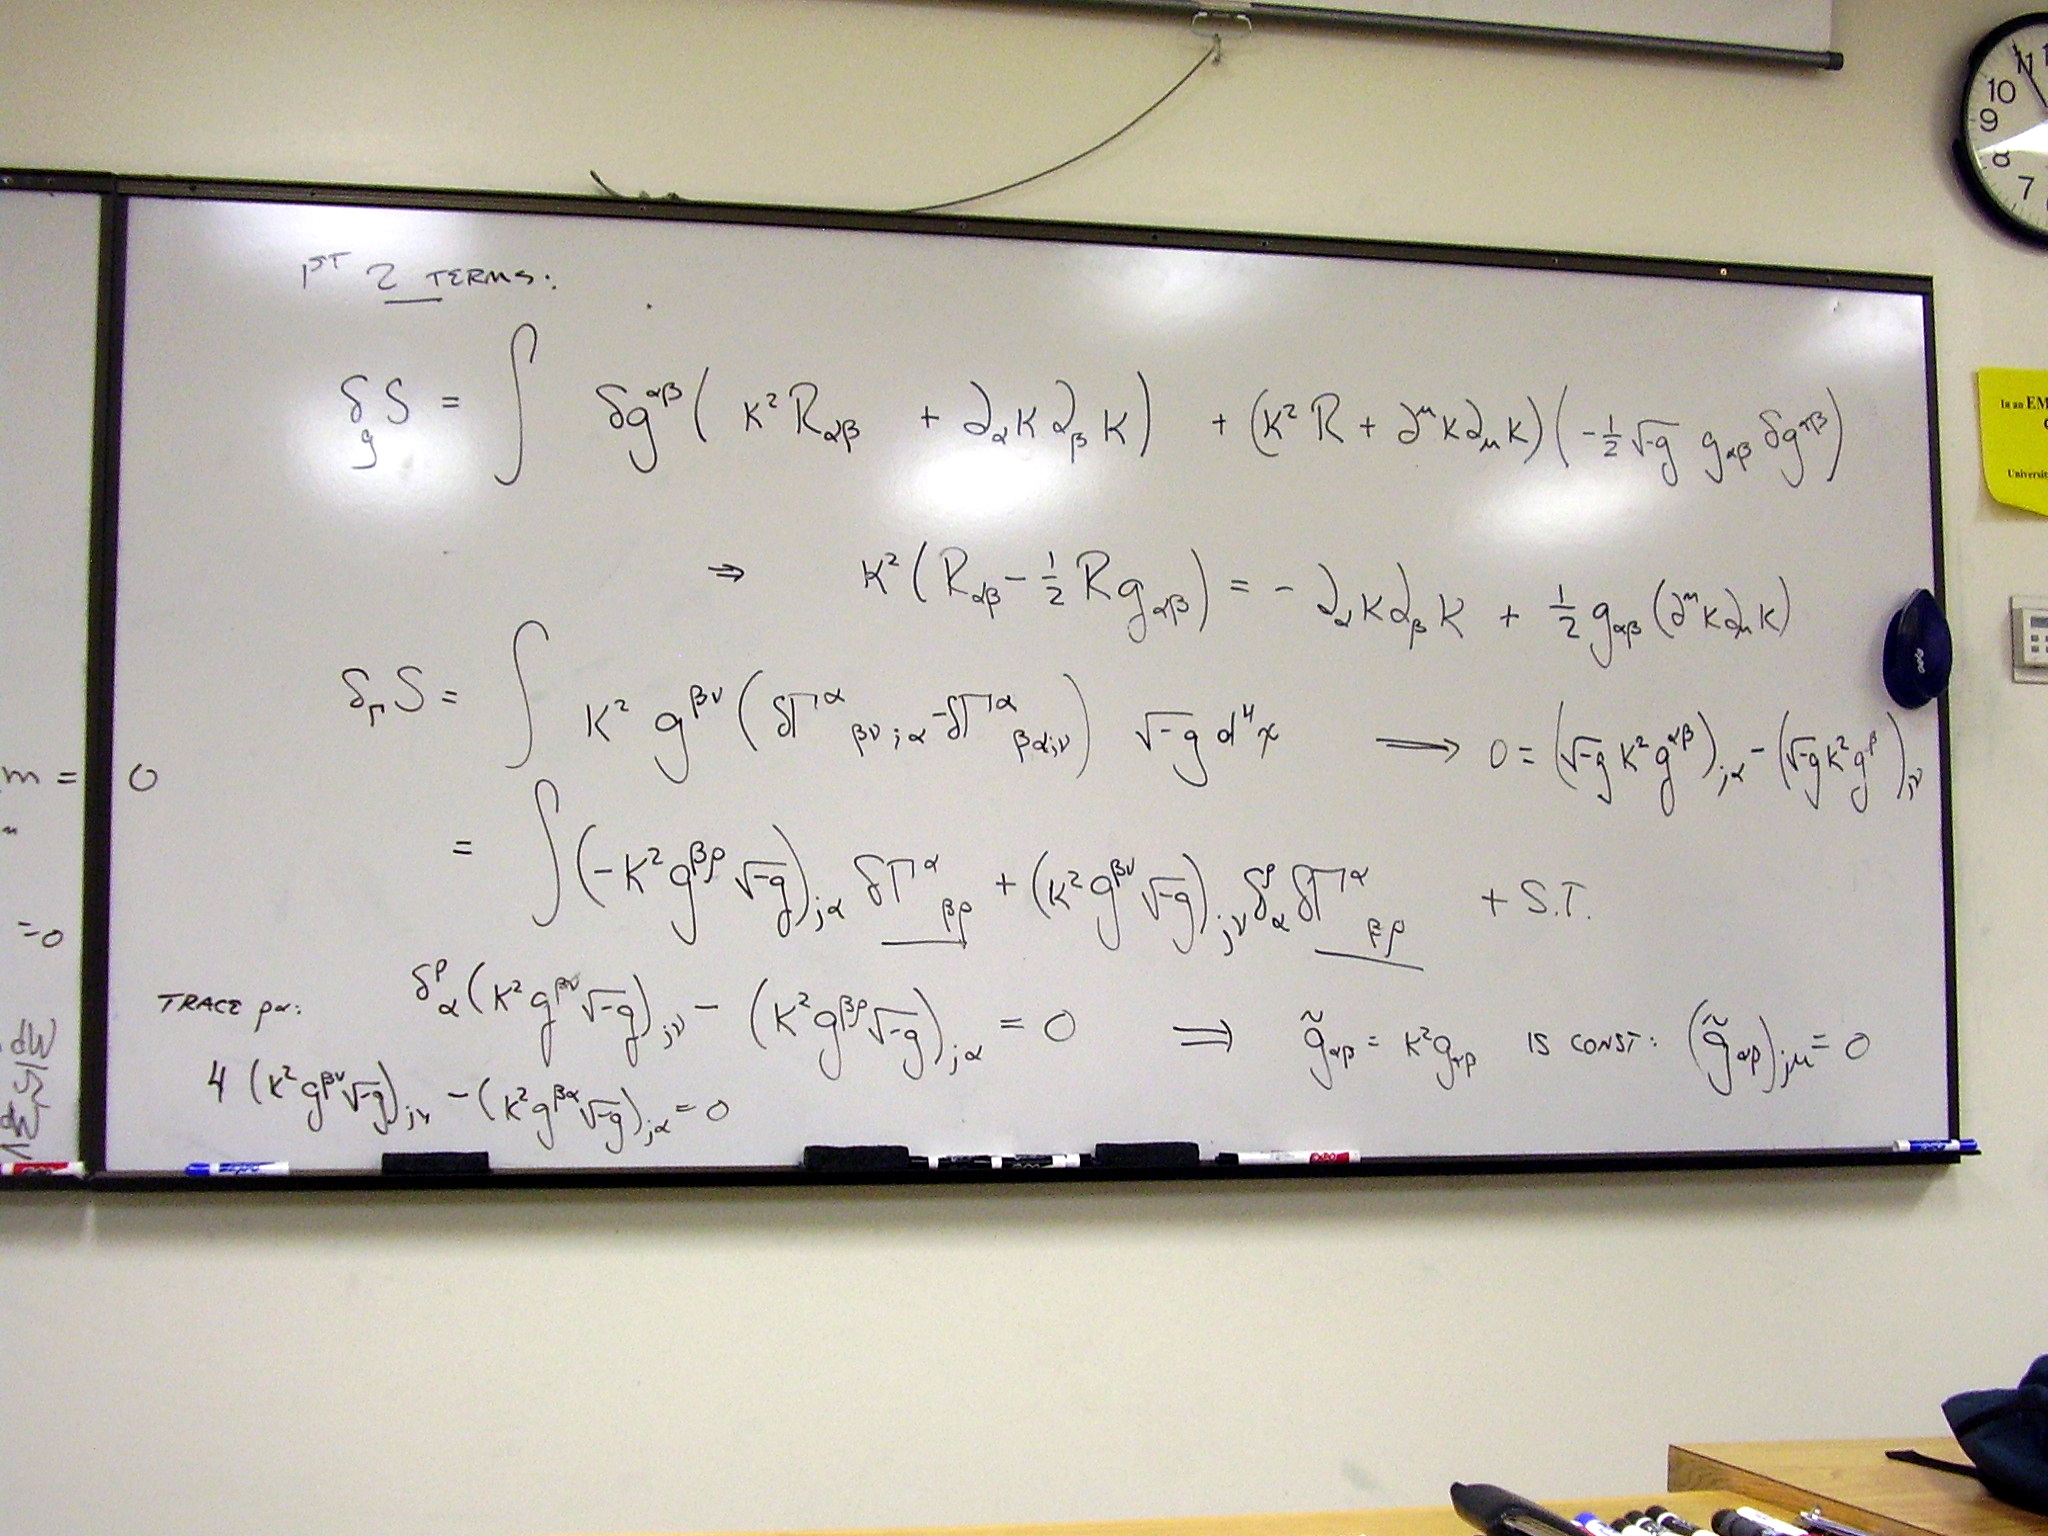 1ST 2 TERMS:
δ_g S = ∫ δg^{αβ} ( K² R_{αβ} + ∂_α K ∂_β K ) + (K² R + ∂^μ K ∂_μ K) ( -½ √-g g_{αβ} δg^{αβ} )
⇒ K² ( R_{αβ} - ½ R g_{αβ} ) = - ∂_α K ∂_β K + ½ g_{αβ} (∂^μ K ∂_μ K)
δ_Γ S = ∫ K² g^{βν} ( δΓ^α_{βν;α} - δΓ^α_{βα;ν} ) √-g d⁴x ⟹ 0 = (√-g K² g^{αβ})_{;α} - (√-g K² g^β)_{;ν}
= ∫ (-K² g^{βρ} √-g)_{;α} δΓ^α_{βρ} + (K² g^{βν} √-g)_{;ν} δ^ρ_α δΓ^α_{βρ} + S.T.
TRACE ρα: δ^ρ_α (K² g^{βν} √-g)_{;ν} - (K² g^{βρ} √-g)_{;α} = 0 ⟹ g̃_{αβ} = K² g_{αβ} IS CONST: (g̃_{αβ})_{;μ} = 0
4 (K² g^{βν} √-g)_{;ν} - (K² g^{βα} √-g)_{;α} = 0
m = 0
=0
11
10
9
8
7
In an EM
Universit
EXPO